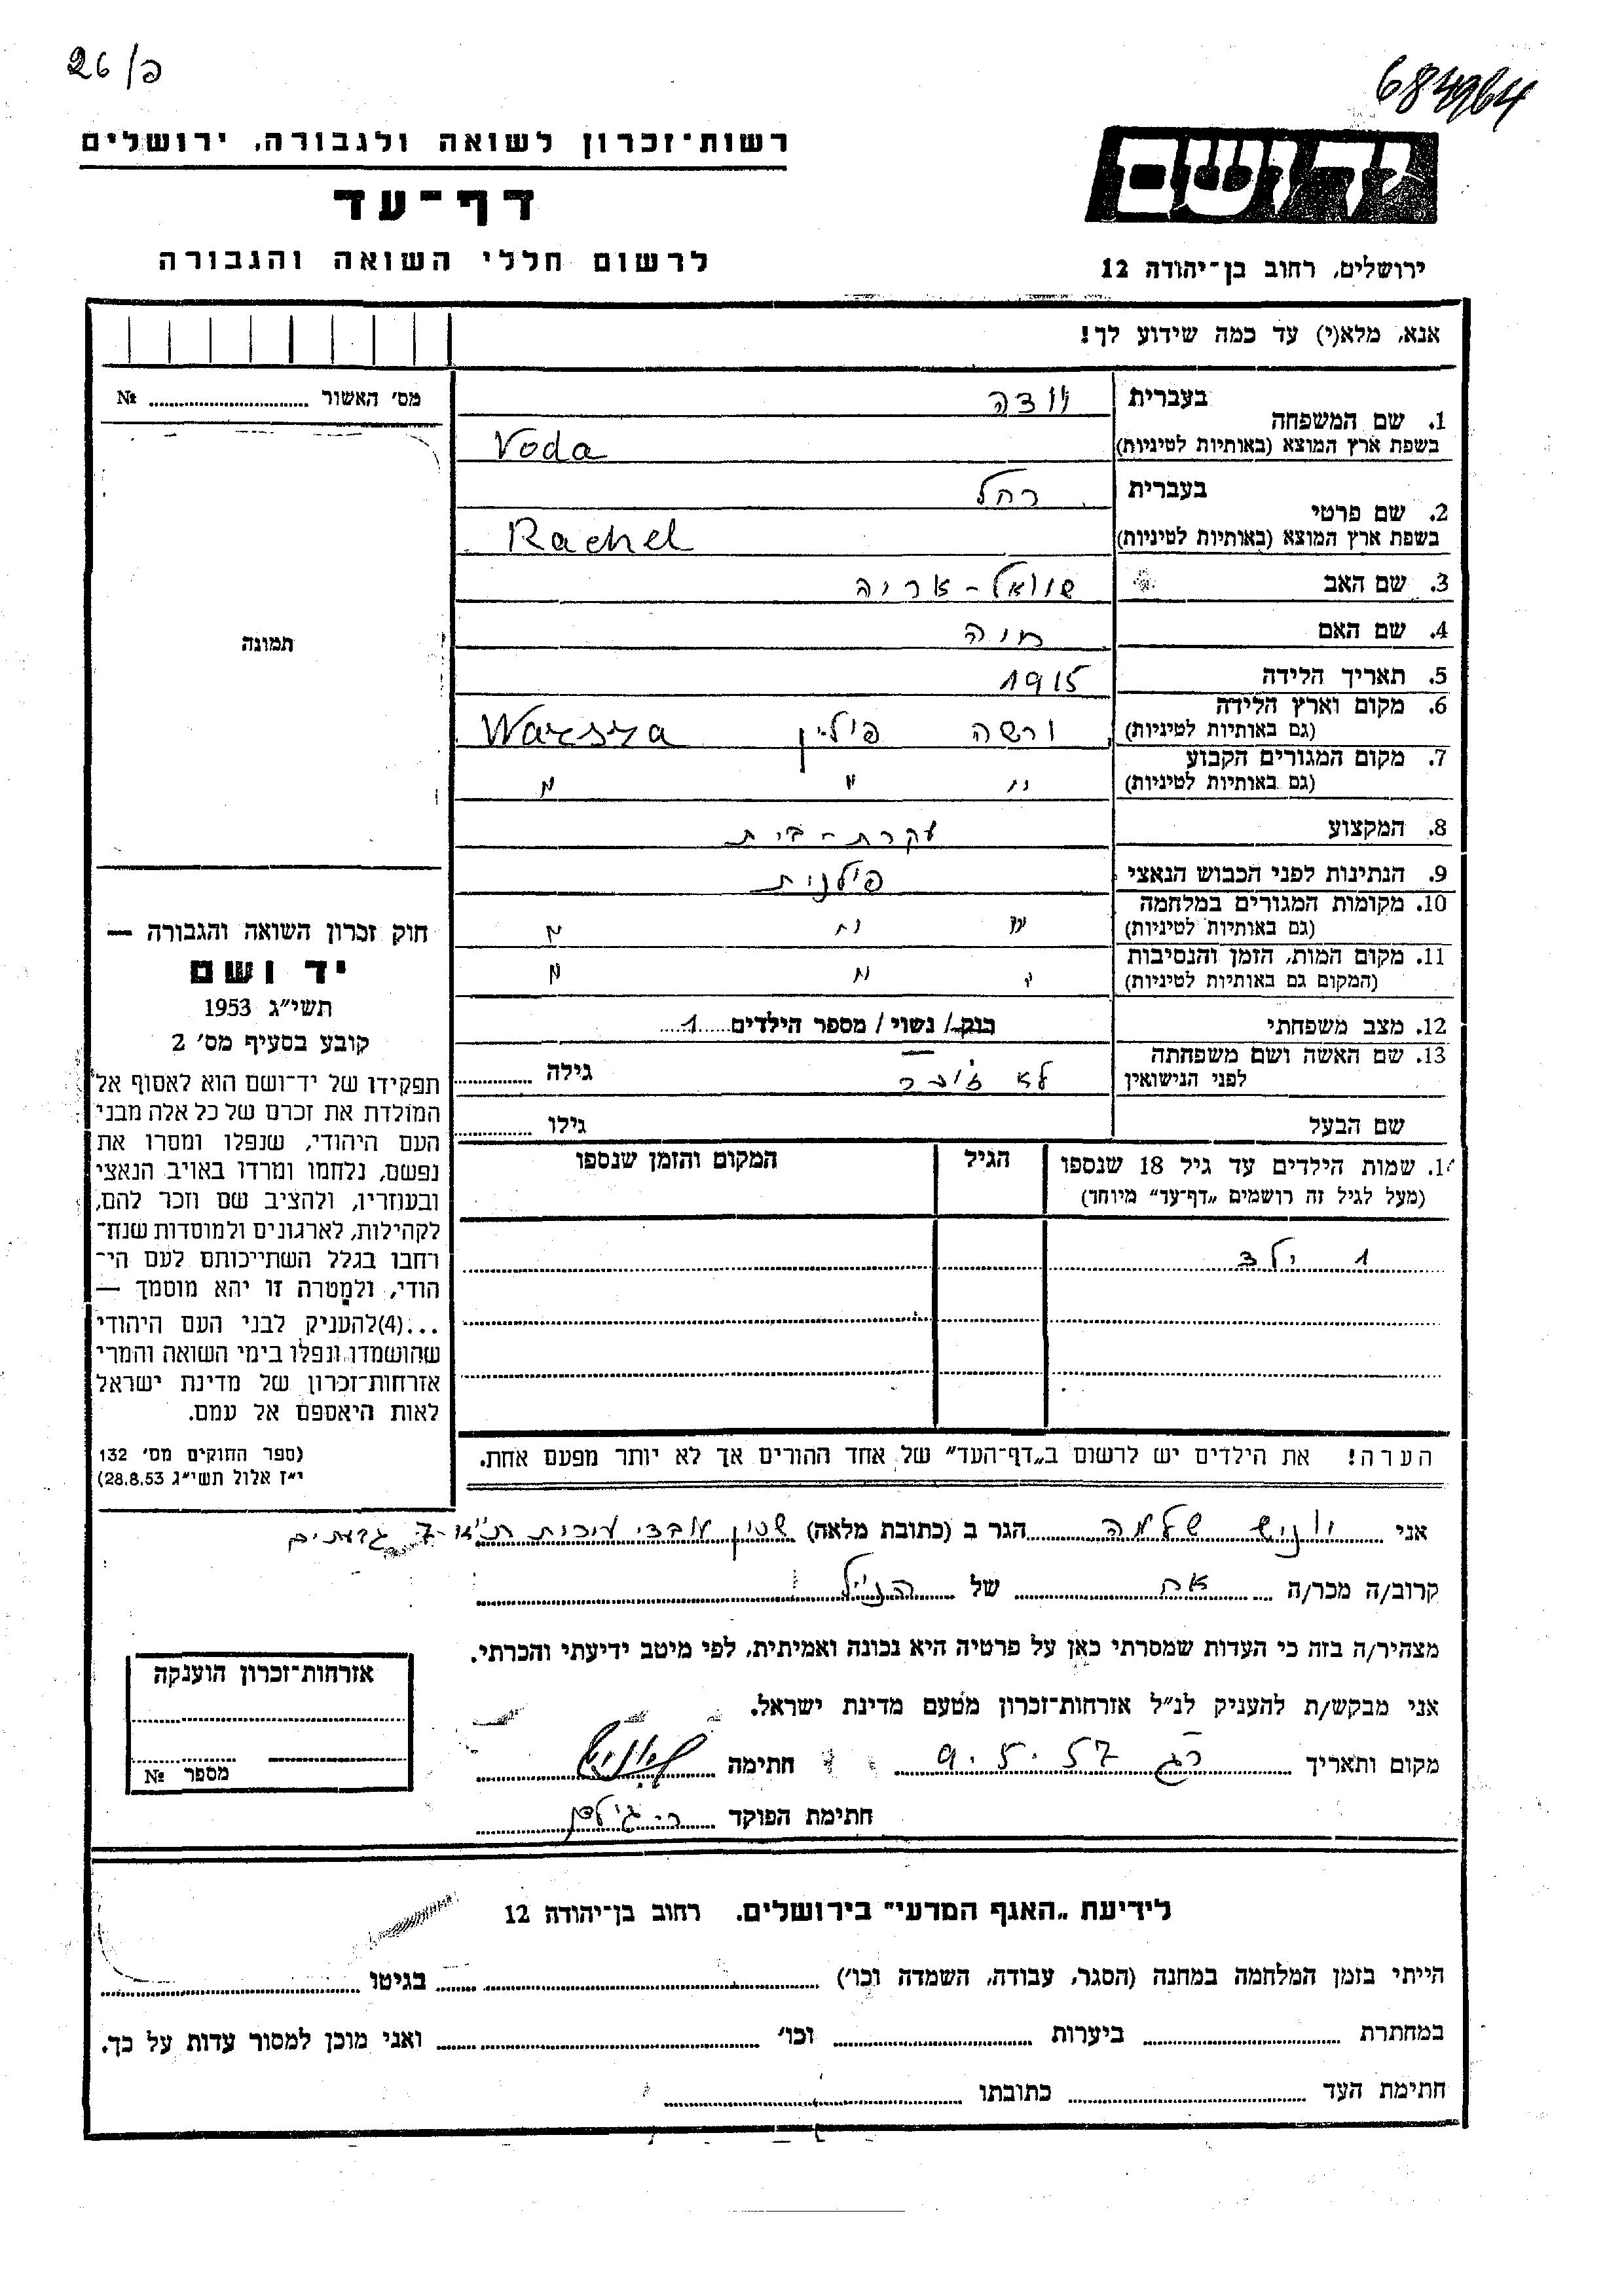 26/פ
684964
רשות-זכרון לשואה ולגבורה, ירושלים
דף-עד
לרשום חללי השואה והגבורה
ידושם
ירושלים, רחוב בן-יהודה 12
אנא, מלא(י) עד כמה שידוע לך!
מס' האשור № ........
תמונה
1. שם המשפחה בעברית וודה
בשפת ארץ המוצא (באותיות לטיניות) Voda
2. שם פרטי בעברית רחל
בשפת ארץ המוצא (באותיות לטיניות) Rachel
3. שם האב שמואל - אריה
4. שם האם חיה
5. תאריך הלידה 1915
6. מקום וארץ הלידה (גם באותיות לטיניות) ורשה פולין Warsza
7. מקום המגורים הקבוע (גם באותיות לטיניות) " " "
8. המקצוע עקרת-בית
9. הנתינות לפני הכבוש הנאצי פולנית
10. מקומות המגורים במלחמה (גם באותיות לטיניות) " " "
11. מקום המות, הזמן והנסיבות (המקום גם באותיות לטיניות) " " "
12. מצב משפחתי רווק/ נשוי/ מספר הילדים 1
13. שם האשה ושם משפחתה לפני הנישואין לא זוכר גילה ........
שם הבעל גילו ........
14. שמות הילדים עד גיל 18 שנספו (מעל לגיל זה רושמים „דף-עד" מיוחד) הגיל המקום והזמן שנספו
1 ילד
הערה! את הילדים יש לרשום ב„דף-העד" של אחד ההורים אך לא יותר מפעם אחת.
חוק זכרון השואה והגבורה —
יד ושם
תשי"ג 1953
קובע בסעיף מס' 2
תפקידו של יד-ושם הוא לאסוף אל
המולדת את זכרם של כל אלה מבני
העם היהודי, שנפלו ומסרו את
נפשם, נלחמו ומרדו באויב הנאצי
ובעוזריו, ולהציב שם וזכר להם,
לקהילות, לארגונים ולמוסדות שנח-
רחבו בגלל השתייכותם לעם הי-
הודי, ולמטרה זו יהא מוסמך —
...(4)להעניק לבני העם היהודי
שהושמדו ונפלו בימי השואה והמרי
אזרחות-זכרון של מדינת ישראל
לאות היאספם אל עמם.
(ספר החוקים מס' 132
י"ז אלול תשי"ג 28.8.53)
אני שלמה הגר ב (כתובת מלאה) שכון עובדי
קרוב/ה מכר/ה אח של הנ"ל
מצהיר/ה בזה כי העדות שמסרתי כאן על פרטיה היא נכונה ואמיתית, לפי מיטב ידיעתי והכרתי.
אני מבקש/ת להעניק לנ"ל אזרחות-זכרון מטעם מדינת ישראל.
מקום ותאריך רג 9.5.57 חתימה
חתימת הפוקד
אזרחות-זכרון הוענקה
מספר №
לידיעת „האגף המדעי" בירושלים. רחוב בן-יהודה 12
הייתי בזמן המלחמה במחנה (הסגר, עבודה, השמדה וכו') ........ בגיטו ........
במחתרת ........ ביערות ........ וכו' ........ ואני מוכן למסור עדות על כך.
חתימת העד ........ כתובתו ........